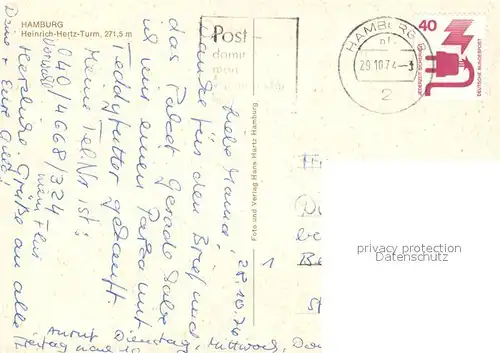 HAMBURG
Heinrich-Hertz-Turm, 271,5 m
Post-
damit
man
HAMBURG
29.10.74-3
2
40
JEDERZEIT SICHERHEIT
DEUTSCHE BUNDESPOST
Foto und Verlag Hans Hartz Hamburg
28.10.74
Liebe Mama!
Danke für den Brief und
das Paket. Gerade habe
ich mir einen Parka mit
Teddyfutter gekauft.
Meine Tel.Nr. ist:
Vorwahl
040/4668/324
Herzliche Grüße an alle
Anruf Dienstag, Mittwoch, Don
1
privacy protection
Datenschutz